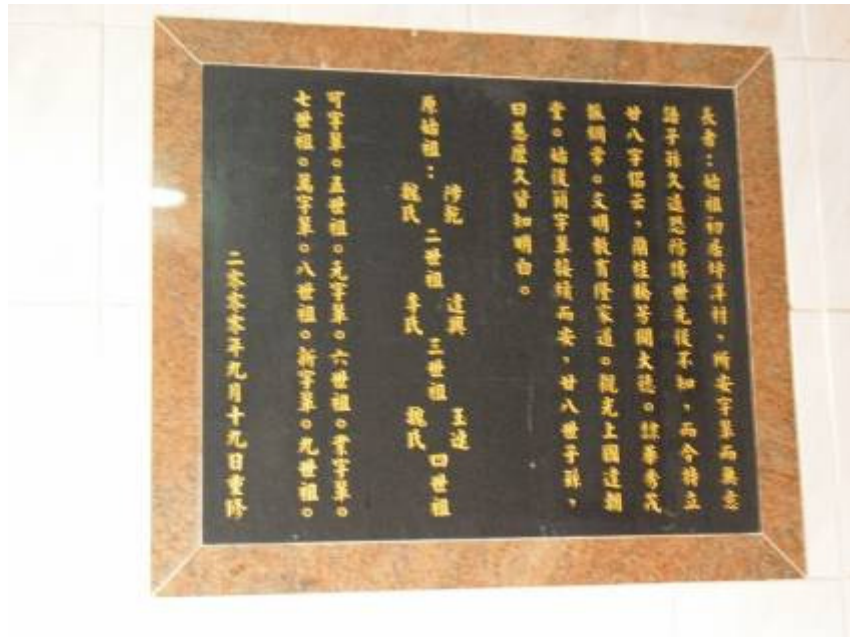 長者：始祖初居坪洋村，所安字輩而無意
諸子孫久遠恐防諸世先後不知，而今特立
廿八字偈云，蘭桂騰芳開大德。隸華秀茂
振綱常。文明教育隆家道。觀光上國達朝
堂。始後頭字輩接續而安，廿八世子孫，
日悉歷久皆知明白。
原始祖：涔乾 魏氏 二世祖 達興 李氏 三世祖 玉連 魏氏 四世祖
可字輩。五世祖。元字輩。六世祖。業字輩。
七世祖。萬字輩。八世祖。新字輩。九世祖。
二零零零年九月十九日重修